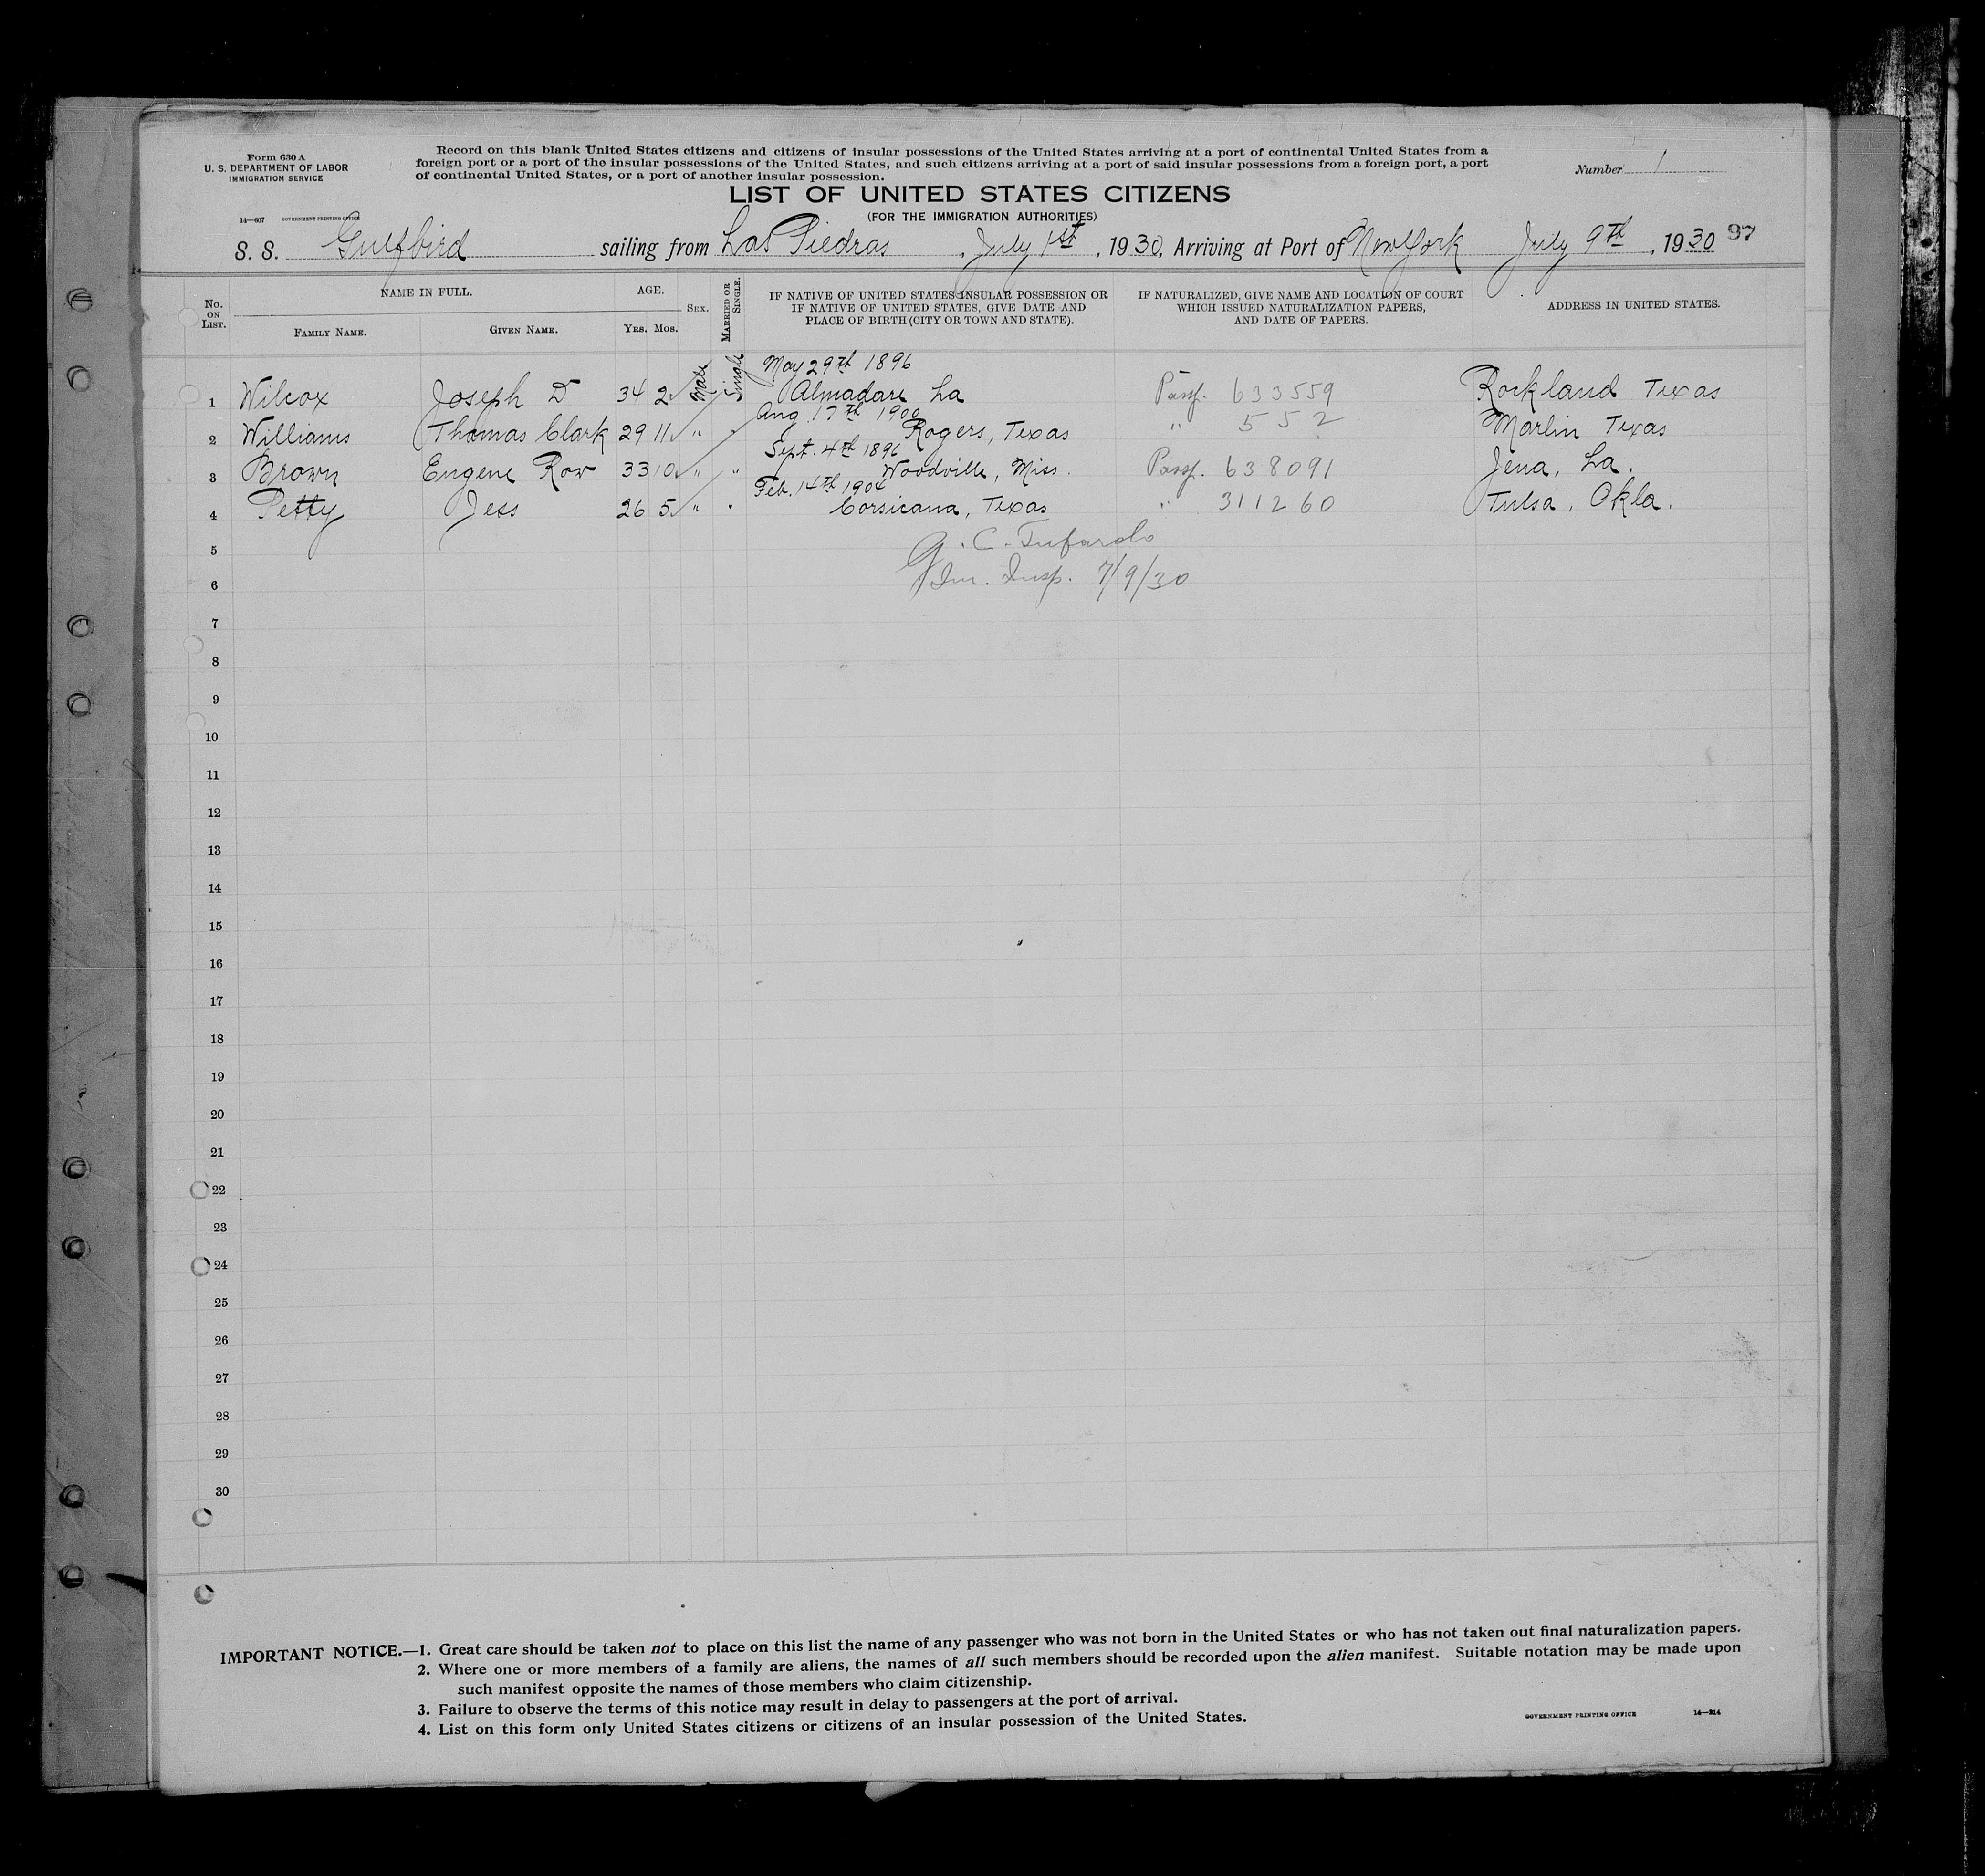 Form 630 A
U. S. DEPARTMENT OF LABOR
IMMIGRATION SERVICE
14—607 GOVERNMENT PRINTING OFFICE
Record on this blank United States citizens and citizens of insular possessions of the United States arriving at a port of continental United States from a
foreign port or a port of the insular possessions of the United States, and such citizens arriving at a port of said insular possessions from a foreign port, a port
of continental United States, or a port of another insular possession.
Number 1
LIST OF UNITED STATES CITIZENS
(FOR THE IMMIGRATION AUTHORITIES)
S. S. Gulfbird sailing from Las Piedras, July 1st, 1930, Arriving at Port of New York July 9th, 1930 97
No. ON LIST.
NAME IN FULL.
FAMILY NAME.
GIVEN NAME.
AGE.
Yrs. Mos.
SEX.
MARRIED OR SINGLE.
IF NATIVE OF UNITED STATES INSULAR POSSESSION OR
IF NATIVE OF UNITED STATES, GIVE DATE AND
PLACE OF BIRTH (CITY OR TOWN AND STATE).
IF NATURALIZED, GIVE NAME AND LOCATION OF COURT
WHICH ISSUED NATURALIZATION PAPERS,
AND DATE OF PAPERS.
ADDRESS IN UNITED STATES.
May 29th 1896
1 Wilcox Joseph D 34 2 Male Single Almadare La Passp. 633559 Rockland Texas
Aug. 17th 1900
2 Williams Thomas Clark 29 11 " " Rogers, Texas " 552 Marlin Texas
Sept. 4th 1896
3 Brown Eugene Row 33 10 " " Woodville, Miss. Passp. 638091 Jena, La.
Feb. 14th 1904
4 Petty Jess 26 5 " " Corsicana, Texas " 311260 Tulsa, Okla.
5 G. C. Tufarolo
6 Im. Insp. 7/9/30
7
8
9
10
11
12
13
14
15
16
17
18
19
20
21
22
23
24
25
26
27
28
29
30
IMPORTANT NOTICE.—1. Great care should be taken not to place on this list the name of any passenger who was not born in the United States or who has not taken out final naturalization papers.
2. Where one or more members of a family are aliens, the names of all such members should be recorded upon the alien manifest. Suitable notation may be made upon
such manifest opposite the names of those members who claim citizenship.
3. Failure to observe the terms of this notice may result in delay to passengers at the port of arrival.
4. List on this form only United States citizens or citizens of an insular possession of the United States.
GOVERNMENT PRINTING OFFICE 14—314